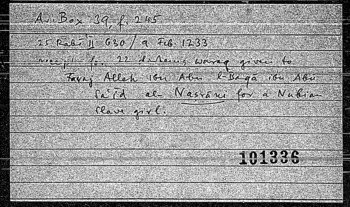 Ar. Box 39, f. 245
25 Rabīʿ II 630 / 9 Feb. 1233
receipt for 22 dirhams waraq given to
Faraj Allah ibn Abu l-Baqā ibn Abu
Saʿīd al-Naṣrānī for a Nubian
slave girl.
101336